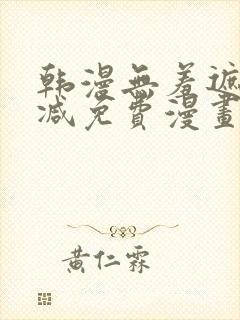 韩漫無羞遮
减免費漫畫
黄仁霖